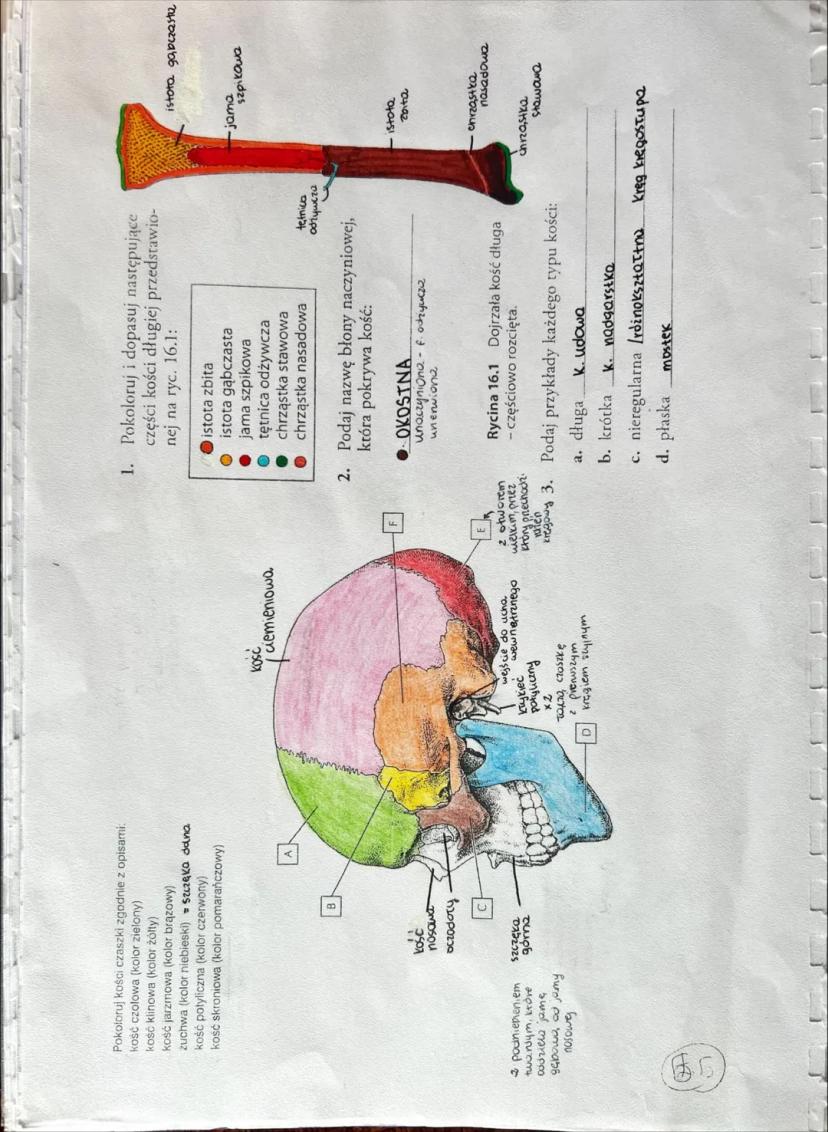 Pokoloruj kości czaszki zgodnie z opisami:
kość czołowa (kolor zielony)
kość klinowa (kolor żółty)
kość jarzmowa (kolor brązowy)
żuchwa (kolor niebieski) = szczęka dolna
kość potyliczna (kolor czerwony)
kość skroniowa (kolor pomarańczowy)
kość
ciemieniowa
A
B
C
D
E
F
kość
nosowa
oczodoły
szczęka
górna
z podniebieniem
twardym, które
oddziela jamę
gębową od jamy
nosowej
wejście do ucha
wewnętrznego
kłykieć
potyliczny
x 2
łączą czaszkę
z pierwszym
kręgiem szyjnym
z otworem
wielkim, przez
który przechodzi
rdzeń
kręgowy
1. Pokoloruj i dopasuj następujące
części kości długiej przedstawio-
nej na ryc. 16.1:
istota zbita
istota gąbczasta
jama szpikowa
tętnica odżywcza
chrząstka stawowa
chrząstka nasadowa
2. Podaj nazwę błony naczyniowej,
która pokrywa kość:
OKOSTNA
unaczyniona - f. odżywcza
unerwiona
istota gąbczasta
jama
szpikowa
tętnica
odżywcza
istota
zbita
chrząstka
nasadowa
chrząstka
stawowa
Rycina 16.1 Dojrzała kość długa
– częściowo rozcięta.
3. Podaj przykłady każdego typu kości:
a. długa k. udowa
b. krótka k. nadgarstka
c. nieregularna /różnokształtna kręg kręgosłupa
d. płaska mostek